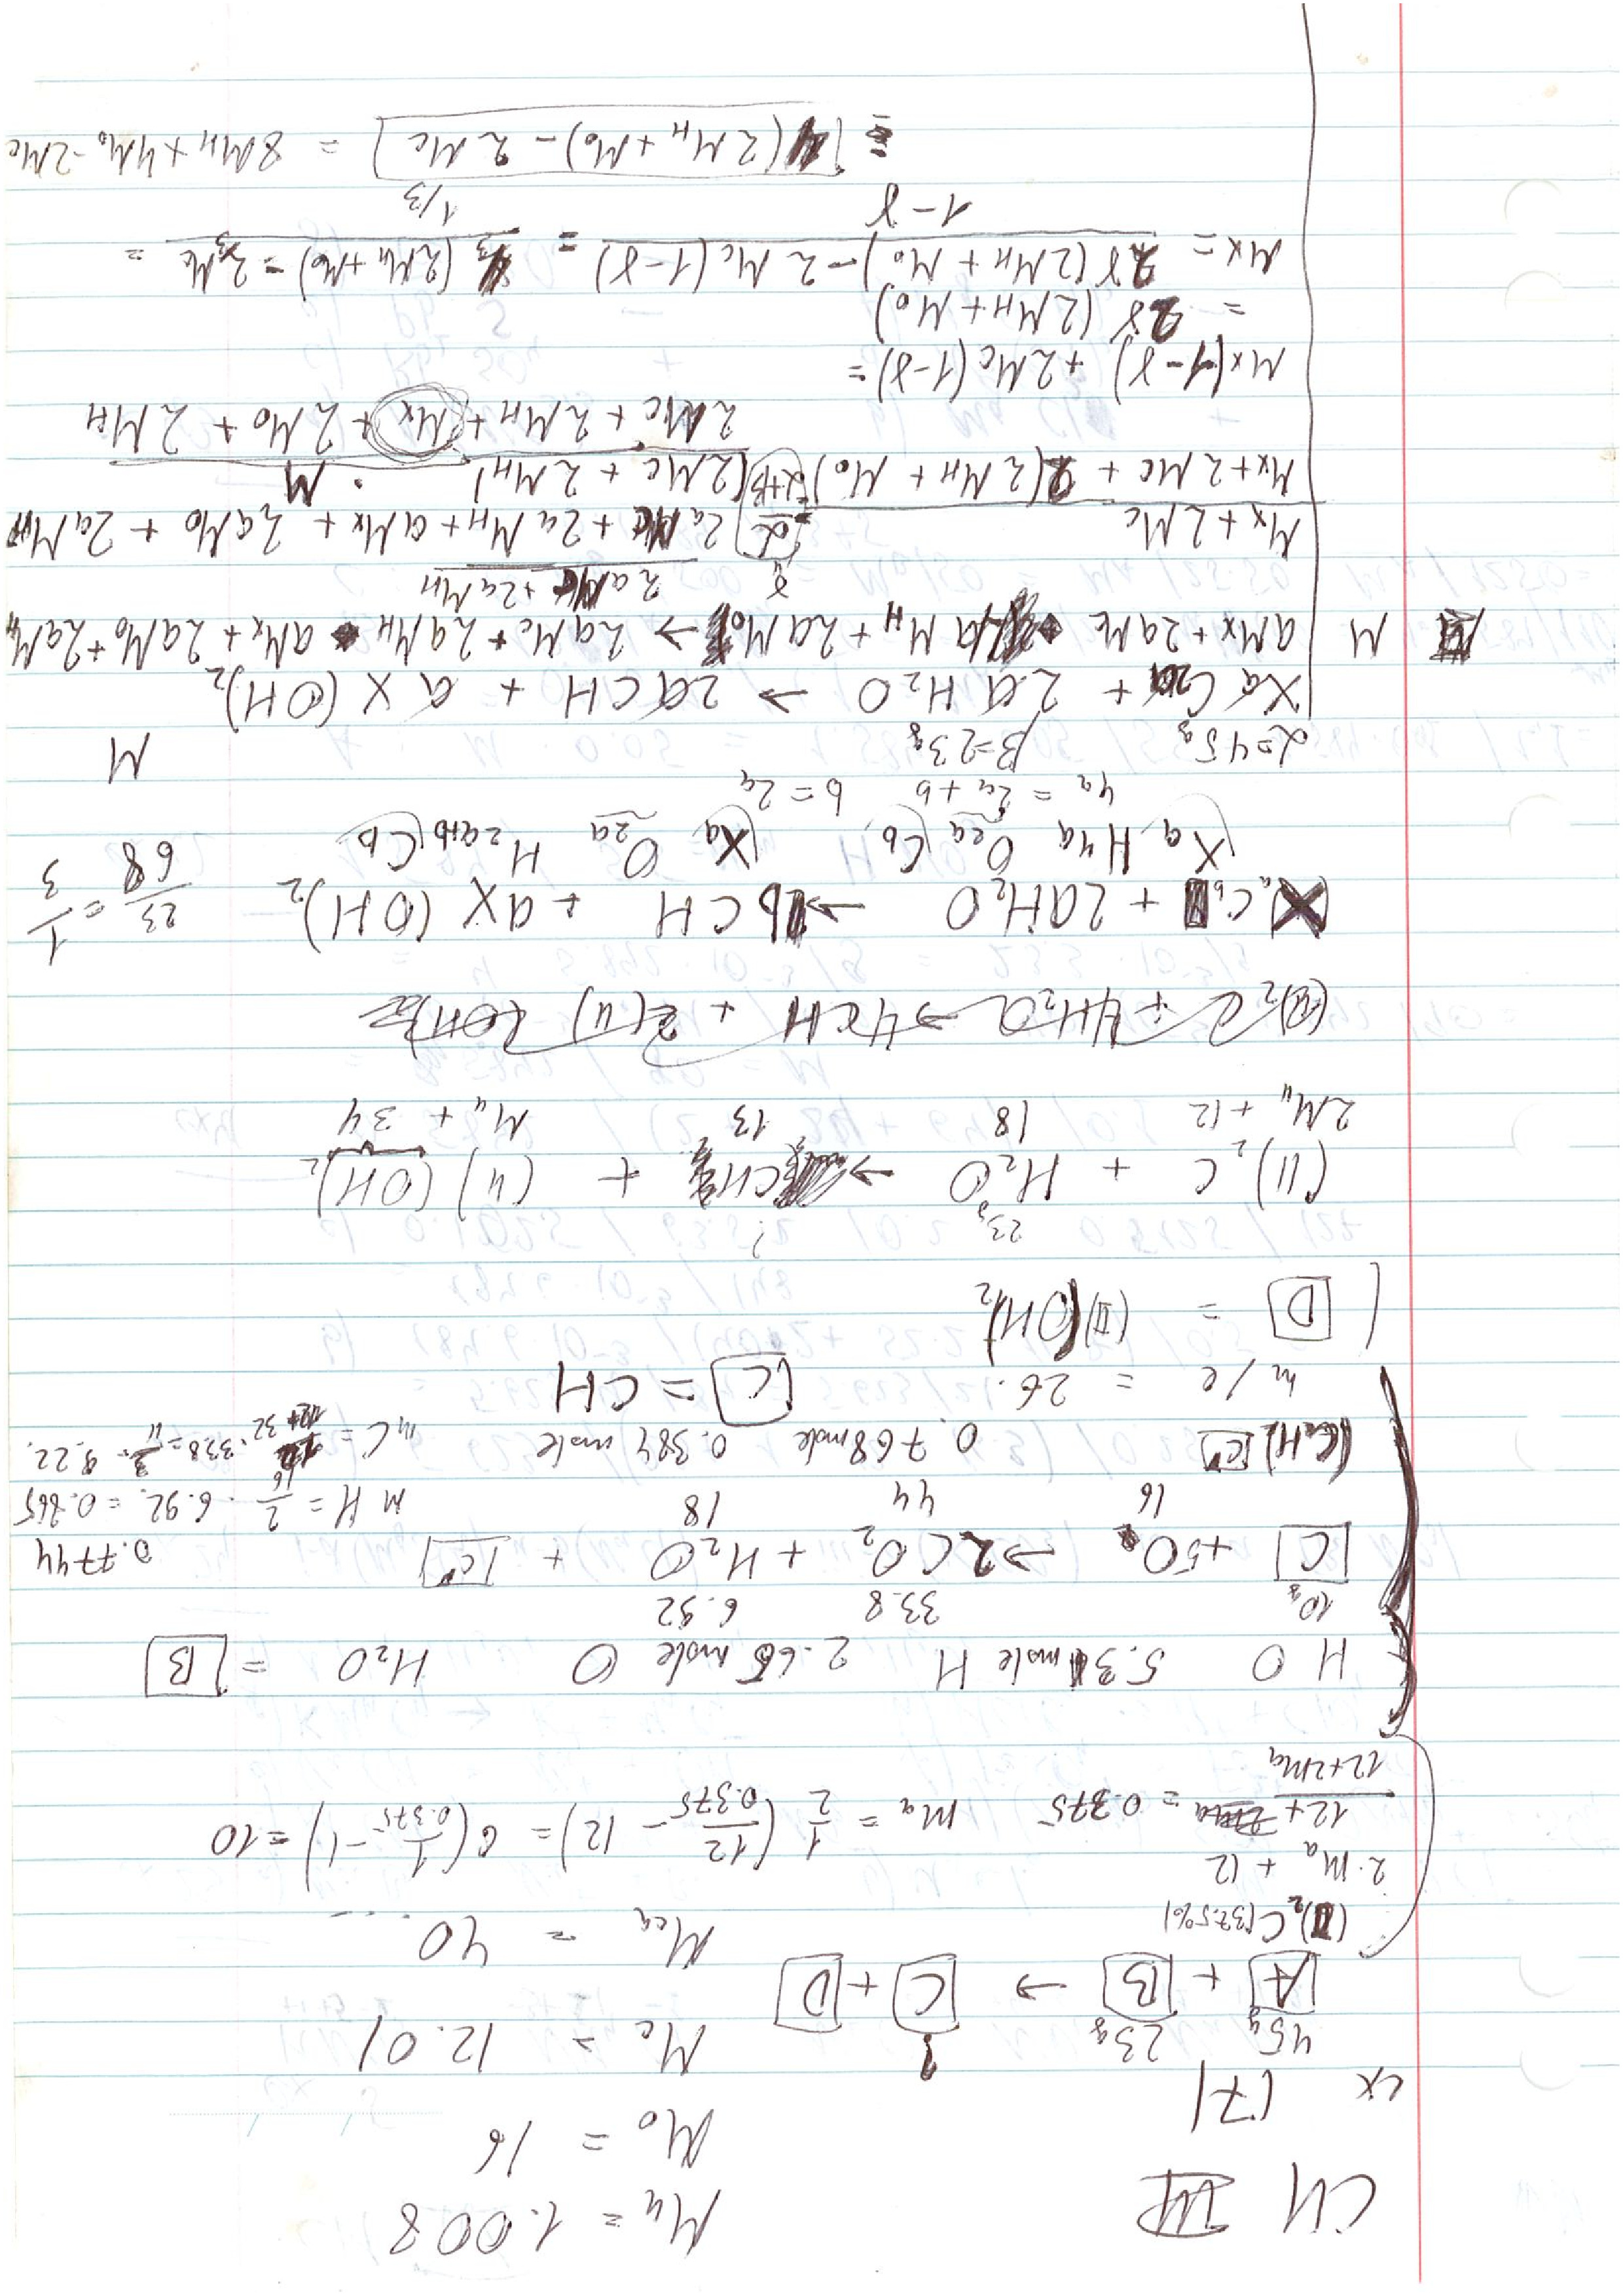 CH III M_H = 1.008
ex (7) M_O = 16
45g 23g ? M_C = 12.01
[A] + [B] → [C] + [D] M_Ca = 40
(II)₂ C (37.5%)
2·Ma + 12
12 / 12+2Ma = 0.375 Ma = 1/2 (12/0.375 - 12) = 6 (1/0.375 - 1) = 10
H O 5.31 mole H 2.65 mole O H₂O = [B]
10g 33.8 6.92
[C] + 5O → 2CO₂ + H₂O + [C] 0.7744
16 44 18 mH = 2/18 · 6.92 = 0.765
(C₂H₂) [C] 0.768 mole 0.384 mole mC = 12/12+32 · 33.8 = 9.22
m/e = 26. [C] = CH
[D] = (II)(OH)₂
23g ?
(II)₂ C + H₂O → CH + (II) (OH)₂
2M_II + 12 18 13 M_II + 34
(II)₂C + 4H₂O → 4CH + 2(II)(OH)₂
XaCb + 2aH₂O → bCH + aX(OH)₂ 23/68 = 1/3
Xa H4a O2a Cb Xa O2a H2a+b Cb
4a = 2a + b b = 2a
α = 45g β = 23g M
XaC2a + 2aH₂O → 2aCH + aX(OH)₂
M aMx + 2aMc + 4aM_H + 2aMo → 2aMc + 2aM_H + aMx + 2aMo + 2aM_H
γ 2aMc + 2aM_H
Mx + 2Mc = α 2aMc + 2aM_H + aMx + 2aMo + 2aM_H
Mx + 2Mc + 2(2M_H + Mo) α+β (2Mc + 2M_H) · M
2Mc + 2M_H + Mx + 2Mo + 2M_H
Mx(1-γ) + 2Mc(1-γ) =
= 2γ(2M_H + Mo)
Mx = 2γ(2M_H + Mo) - 2Mc(1-γ) / 1-γ = 4/3 (2M_H + Mo) - 2/3 Mc / 1/3 =
= 4(2M_H + Mo) - 2Mc = 8M_H + 4Mo - 2Mc